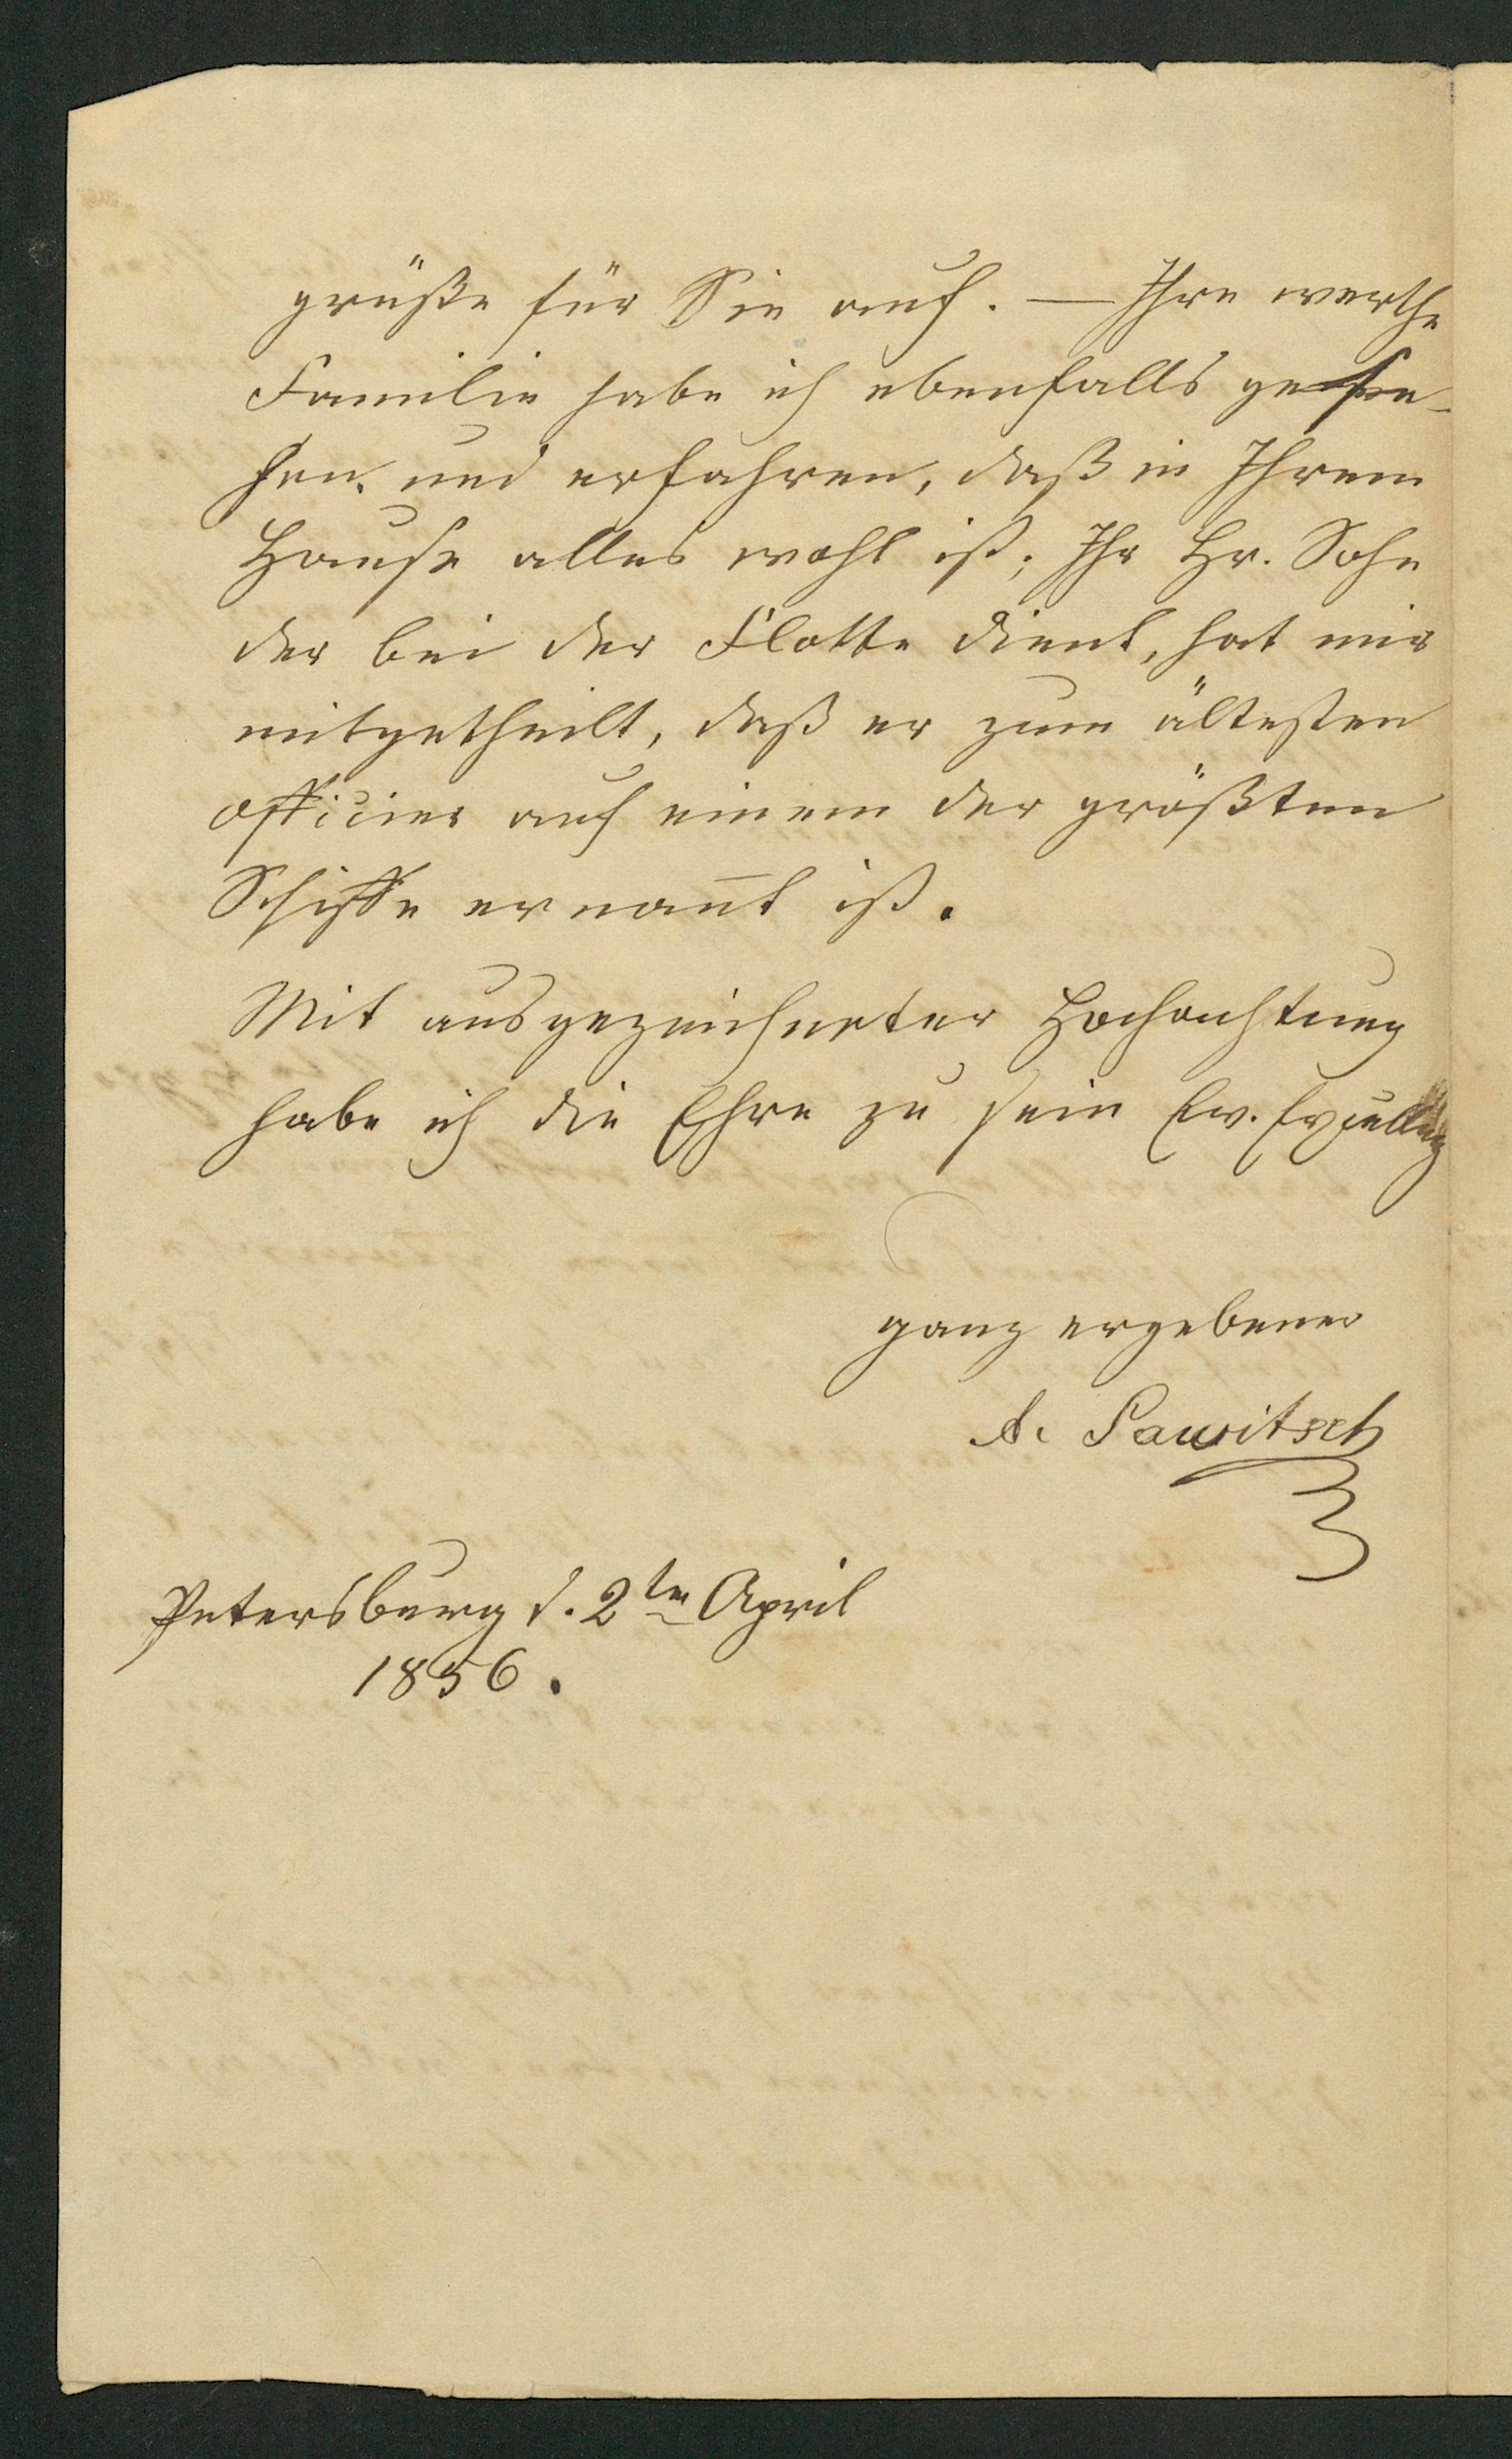 grüße für Sie auf. — Ihre werthe
Familie habe ich ebenfalls gese-
hen, und erfahren, daß in Ihrem
Hause alles wohl ist; Ihr Hr. Sohn
der bei der Flotte dient, hat mir
mitgetheilt, daß er zum ältesten
Officier auf einem der größten
Schiffe ernan̄t ist.
Mit ausgezeichneter Hochachtung
habe ich die Ehre zu sein Ew. Excellenz
ganz ergebener
A. Sawitsch
Petersburg d. 2ten April
1856.